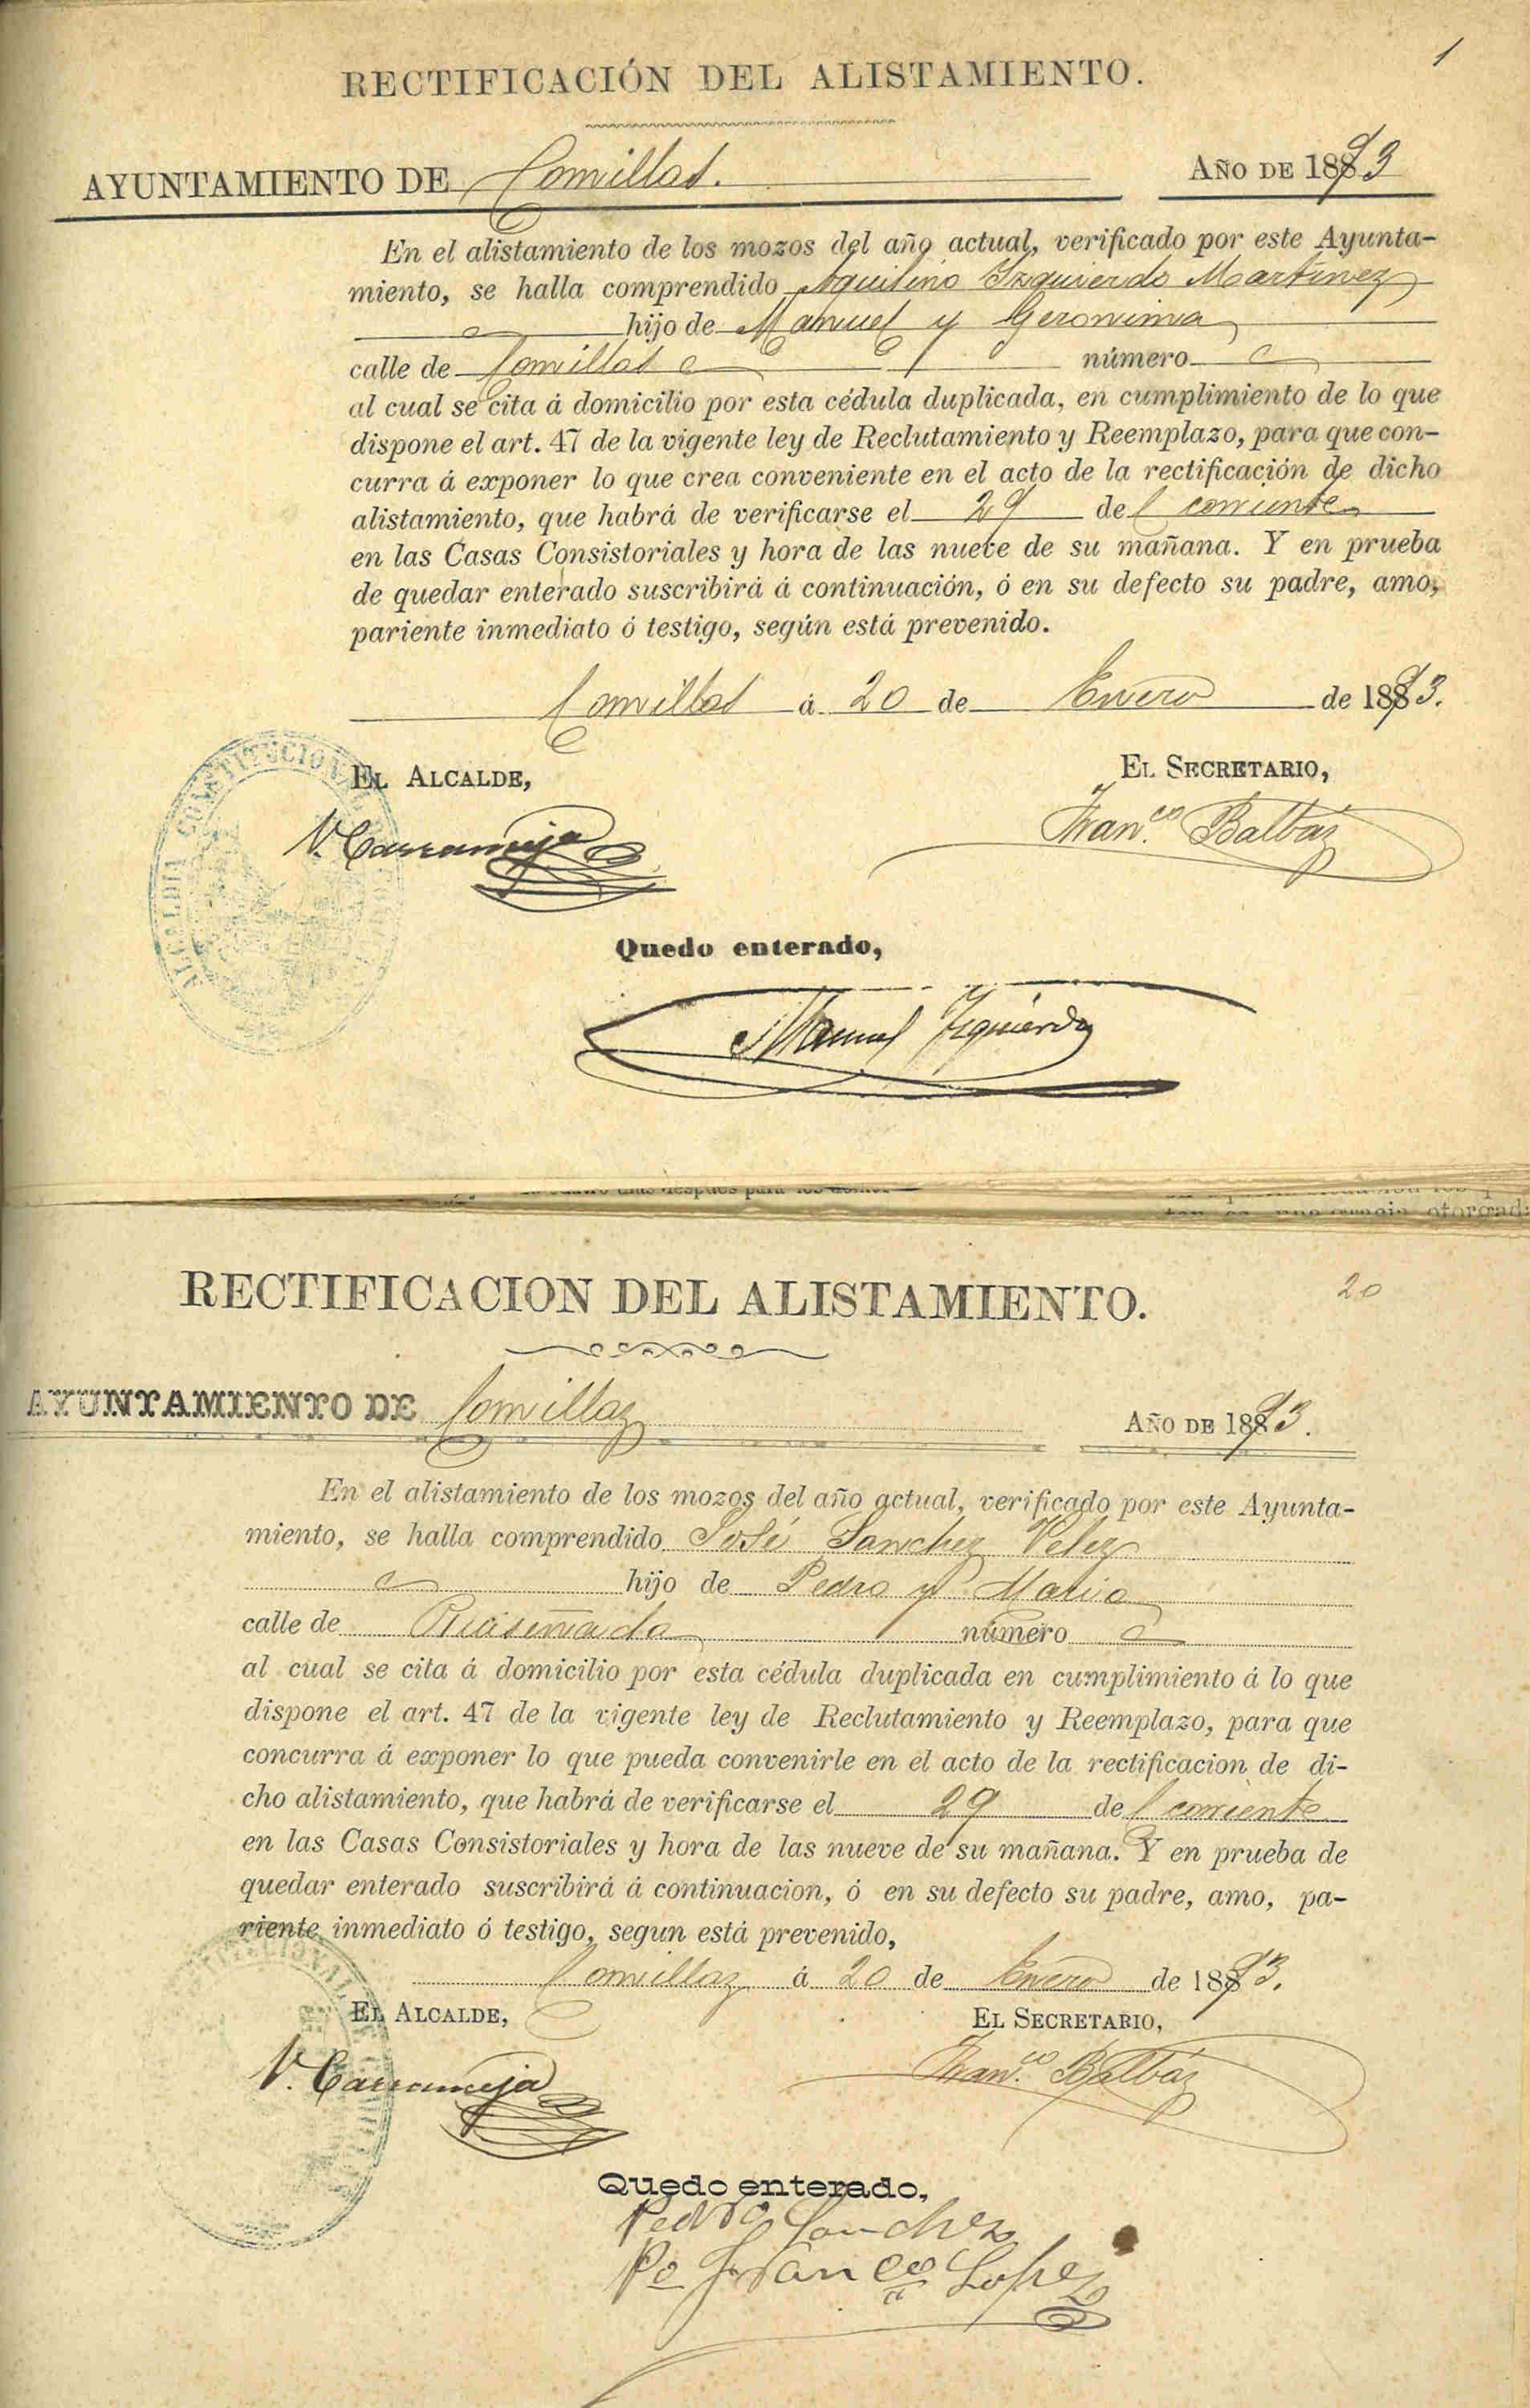 1
RECTIFICACIÓN DEL ALISTAMIENTO.
AYUNTAMIENTO DE Comillas. AÑO DE 1893
En el alistamiento de los mozos del año actual, verificado por este Ayunta-
miento, se halla comprendido Aquilino Izquierdo Martinez
hijo de Manuel y Geronima
calle de Comillas número
al cual se cita á domicilio por esta cédula duplicada, en cumplimiento de lo que
dispone el art. 47 de la vigente ley de Reclutamiento y Reemplazo, para que con-
curra á exponer lo que crea conveniente en el acto de la rectificación de dicho
alistamiento, que habrá de verificarse el 29 del corriente
en las Casas Consistoriales y hora de las nueve de su mañana. Y en prueba
de quedar enterado suscribirá á continuación, ó en su defecto su padre, amo,
pariente inmediato ó testigo, según está prevenido.
Comillas á 20 de Enero de 1893.
EL ALCALDE, EL SECRETARIO,
ALCALDIA CONSTITUCIONAL
V. Carranceja Fran.co Balbás
Quedo enterado,
Manuel Izquierdo
20
RECTIFICACION DEL ALISTAMIENTO.
AYUNTAMIENTO DE Comillaz AÑO DE 1893.
En el alistamiento de los mozos del año actual, verificado por este Ayunta-
miento, se halla comprendido José Sanchez Velez
hijo de Pedro y Maria
calle de Ruiseñada número
al cual se cita á domicilio por esta cédula duplicada en cumplimiento á lo que
dispone el art. 47 de la vigente ley de Reclutamiento y Reemplazo, para que
concurra á exponer lo que pueda convenirle en el acto de la rectificacion de di-
cho alistamiento, que habrá de verificarse el 29 del corriente
en las Casas Consistoriales y hora de las nueve de su mañana. Y en prueba de
quedar enterado suscribirá á continuacion, ó en su defecto su padre, amo, pa-
riente inmediato ó testigo, segun está prevenido,
Comillaz á 20 de Enero de 1893.
EL ALCALDE, EL SECRETARIO,
V. Carranceja Fran.co Balbás
Quedo enterado,
Pedro Sanchez
Po Franco Lopez